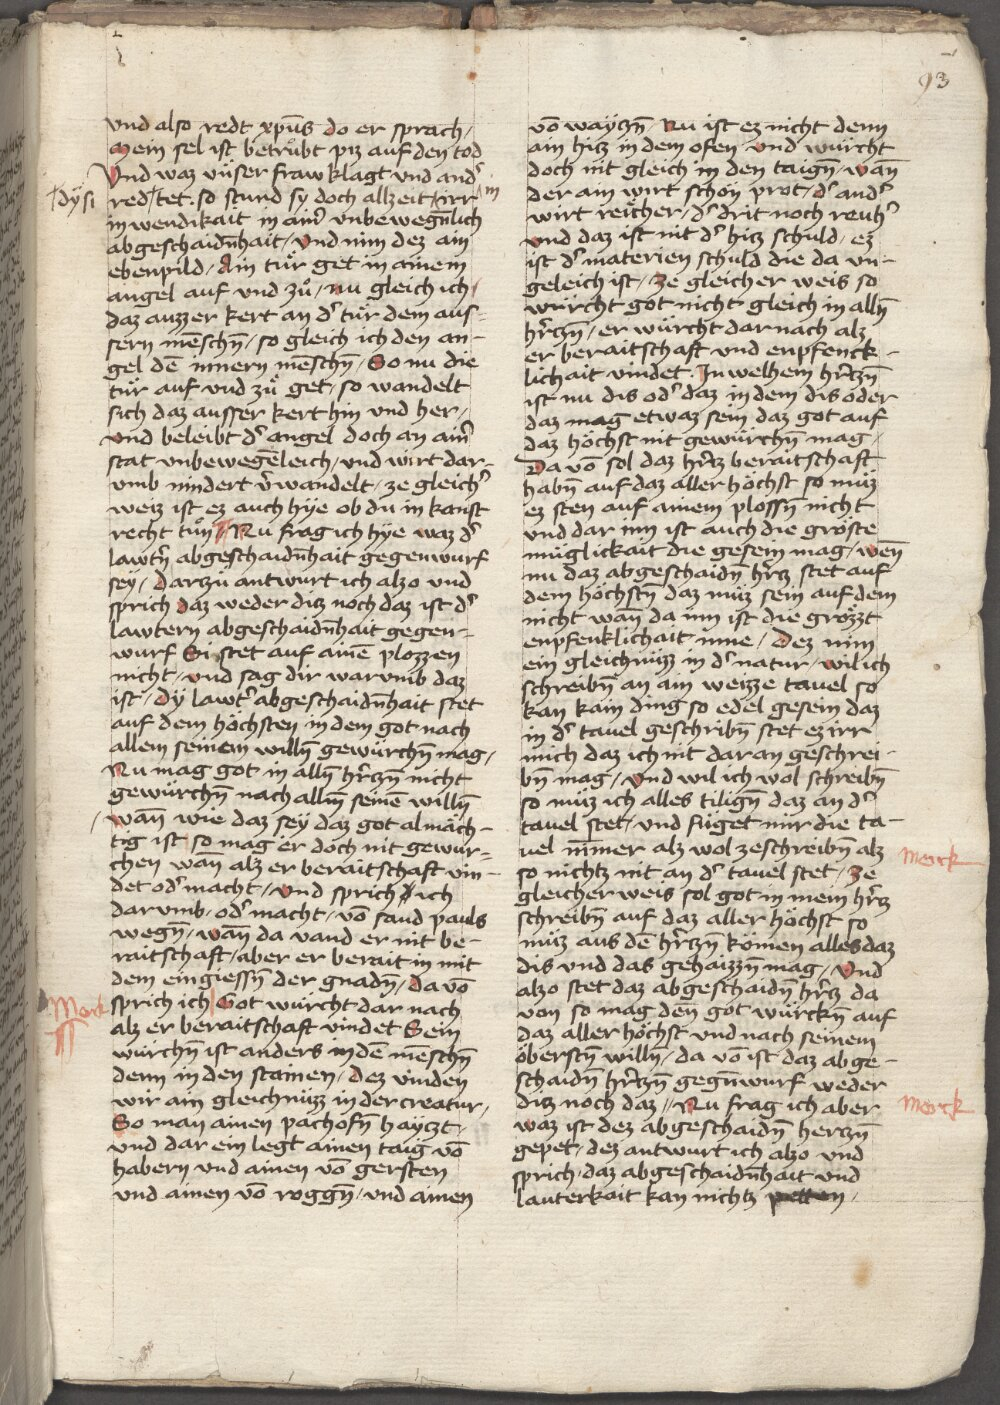 93
vnd also redt xpūs do er sprach /
Mein sel ist betrübt piz auf den tod
Vnd waz vn̄ser fraw klagt vnd and᷑
†dÿsi
redet. so stund sy doch allzeit in irr
inwendikait in ain᷑ vnbewegn̄lich
abgeschaidn̄hait / Vnd nim dez ain
ebenpild / Ain tür get in ainem
angel auf vnd zů / Nu gleich ich
daz auzzer kert an d᷑ tür dem aus=
sern mēschn̄ / so gleich ich den an-
gel dē innern mēschn̄ / So nu die
tür auf vnd zů get / so wandelt
sich daz ausser kert hin vnd her /
vnd beleibt d᷑ angel doch an ain᷑
stat vnbewegēleich / vnd wirt dar-
vmb nindert v᷑wandelt / ze gleich᷑
weiz ist ez auch hÿe ob du in kanst
recht tůn // Nu frag ich hÿe waz d᷑
lawt᷑n abgeschaidn̄hait gegenwurf
seÿ / darzů antwurt ich alzo vnd
sprich daz weder diz noch daz ist d᷑
lawtern abgeschaidn̄hait gegen=
wurf Si stet auf ainē plozzen
nicht / vnd sag dir warvmb daz
ist / Dÿ lawt᷑ abgeschaidn̄hait stet
auf dem höchsten in dem got nach
allem seinem willn̄ gewürchn̄ mag /
Nu mag got in alln̄ h᷑rczn̄ nicht
gewürchn̄ nach allm̄ seinē willn̄
/ wān wie daz seÿ daz got almäch-
tig ist so mag er doch nit gewür=
chen wan alz er beraitschaft vin-
det od᷑ macht / vnd sprich ich
darvmb / od᷑ macht / vō sand pauls
wegn̄ / wān da vand er nit be-
raitschaft / aber er berait in mit
dem eingiessn̄ der gnadn̄ / Da vō
Merck
sprich ich Got würcht dar nach
alz er beraitschaft vindet Sein
würchn̄ ist anders in dē mēschn̄
denn in den stainen / Dez vinden
wir ain gleichnüzz in der creatur /
So man ainen pachofn̄ hayczt /
vnd dar ein legt ainen taig vō
habern vnd ainen vō gersten
vnd ainen vō roggn̄ / vnd ainen
vō wayczn̄ / Nu ist ez nicht denn
ain hicz in dem ofen / vnd würcht
doch nit gleich in den taign̄ / wān
der ain wirt schön prot / d᷑ and᷑
wirt reücher / d᷑ drit noch reuh᷑
vnd daz ist nit d᷑ hicz schuld / ez
ist d᷑ materien schuld die da vn-
geleich ist / Ze gleicher weis so
würcht got nicht gleich in alln̄
h᷑rczn̄ / er würcht dar nach alz
er beraitschaft vnd enpfenck-
lichait vindet. In welhem h᷑rczn̄
ist nu dis od᷑ daz in dem dis oder
daz mag etwaz sein daz got auf
daz höchst nit gewürchn̄ mag /
Da vō sol daz h᷑rcz beraitschaft
habn̄ auf daz aller höchst so müz
ez sten auf ainem plossn̄ nicht
vnd dar inn ist auch die gröste
müglickait die gesein mag / wēn
nu daz abgeschaidn̄ h᷑rcz stet auf
dem höchstn̄ daz müz sein auf dem
nicht wan̄ da inn ist die grözzt
enpfenklichait inne / Dez nim
ein gleichnüzz in d᷑ natur / wil ich
schreibn̄ an ain weizze tauel so
kan kain ding so edel gesein daz
in d᷑ tauel geschribn̄ stet ez irr
mich daz ich nit dar an geschrei-
bn̄ mag / vnd wil ich wol schreibn̄
so müz ich alles tilign̄ daz an d᷑
tauel stet / vnd füget mir die ta-
uel nīmer alz wol ze schreibn̄ alz
Merck
so nichtz nit an d᷑ tauel stet / Ze
gleicher weis sol got in mein h᷑rcz
schreibn̄ auf daz aller höchst so
müz aus dē h᷑rczn̄ kömen alles daz
dis vnd das gehaizzn̄ mag / Vnd
alzo stet daz abgeschaidn̄ h᷑rcz da
von so mag denn̄ got würckn̄ auf
daz aller höchst vnd nach seinem
öberstn̄ willn̄ / da vō ist daz abge-
schaidn̄ h᷑rczn̄ gegn̄wurf weder
Merck
diz noch daz // Nu frag ich aber
waz ist dez abgeschaidn̄ herczn̄
gepet / dez antwurt ich alzo vnd
sprich / daz abgeschaidn̄hait vnd
lauterkait kan nichtz petten /